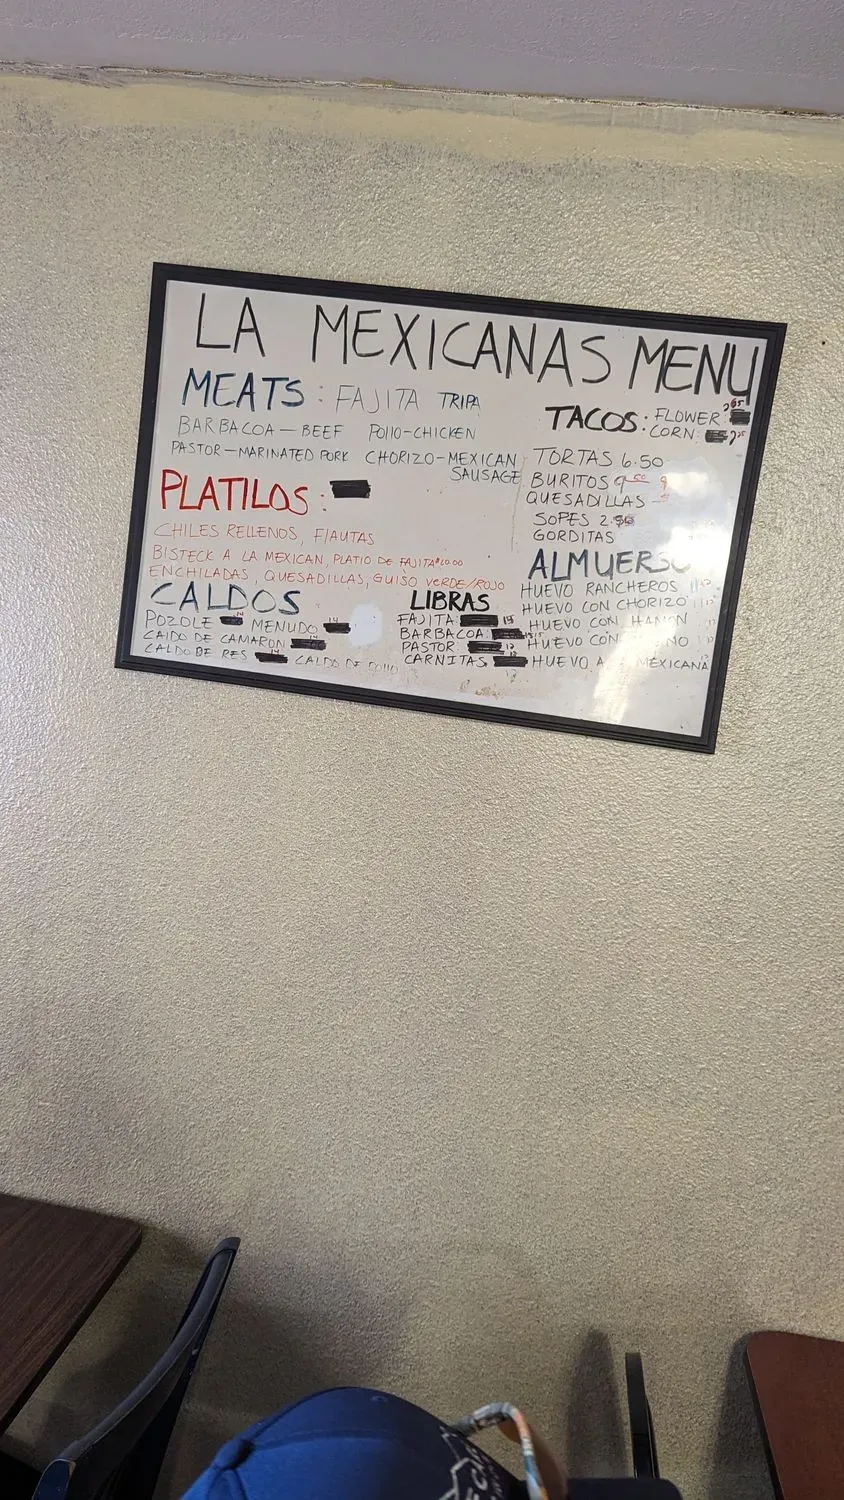 LA MEXICANAS MENU
MEATS: FAJITA TRIPA
BARBACOA — BEEF POllO-CHICKEN
PASTOR—MARINATED PORK CHORIZO-MEXICAN
SAUSAGE
PLATILOS:
CHILES RELLENOS, FlAUTAS
BISTECK A LA MEXICAN, PLATIO DE FAJITA $10.00
ENCHILADAS, QUESADILLAS, GUISO VERDE/ROJO
CALDOS
POZOLE 14 MENUDO 14
CAlDO DE CAMARON 14
CALDO DE RES 14 CALDO DE POllO
LIBRAS
FAJITA:
BARBACOA:
PASTOR:
CARNITAS
TACOS: FLOWER
CORN:
TORTAS 6.50
BURITOS 9
QUESADILLAS
SOPES
GORDITAS
ALMUERSO
HUEVO RANCHEROS
HUEVO CON CHORIZO
HUEVO CON HAMON
HUEVO CON
HUEVO A MEXICANA